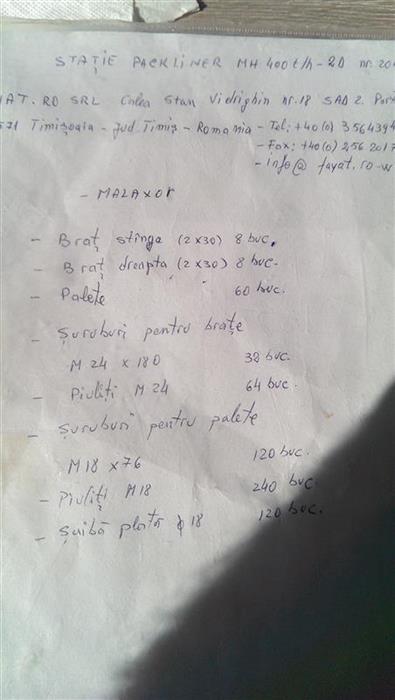 STAȚIE PACKLINER MH 400 t/h - 20 nr. 20
AT. RO SRL Calea Stan Vidrighin nr. 18 SAD 2.
Timișoara - Jud Timiș - Romania - Tel: +40(0) 356439
- Fax: +40(0) 256 201
- info@ fayat.ro
- MALAXOR
- Braț stînga (2x30) 8 buc.
- Braț dreapta (2x30) 8 buc.
- Palete 60 buc.
- Șuruburi pentru brațe
M 24 x 180 32 buc.
- Piuliți M 24 64 buc.
- Șuruburi pentru palete
M18 x76 120 buc.
- Piuliți M18 240 buc.
- Șaibă plată ϕ 18 120 buc.